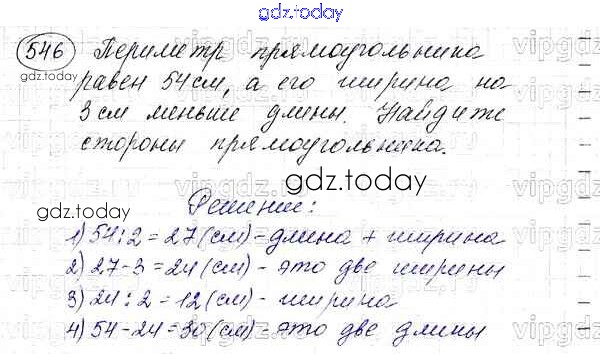 gdz.today
546 Периметр прямоугольника
gdz.today
равен 54 см, а его ширина на
3 см меньше длины. Найдите
стороны прямоугольника.
gdz.today
gdz.today
Решение:
1) 54:2=27(см)-длина + ширина
2) 27-3=24(см)-это две ширины
3) 24:2=12(см)-ширина
4) 54-24=30(см)-это две длины